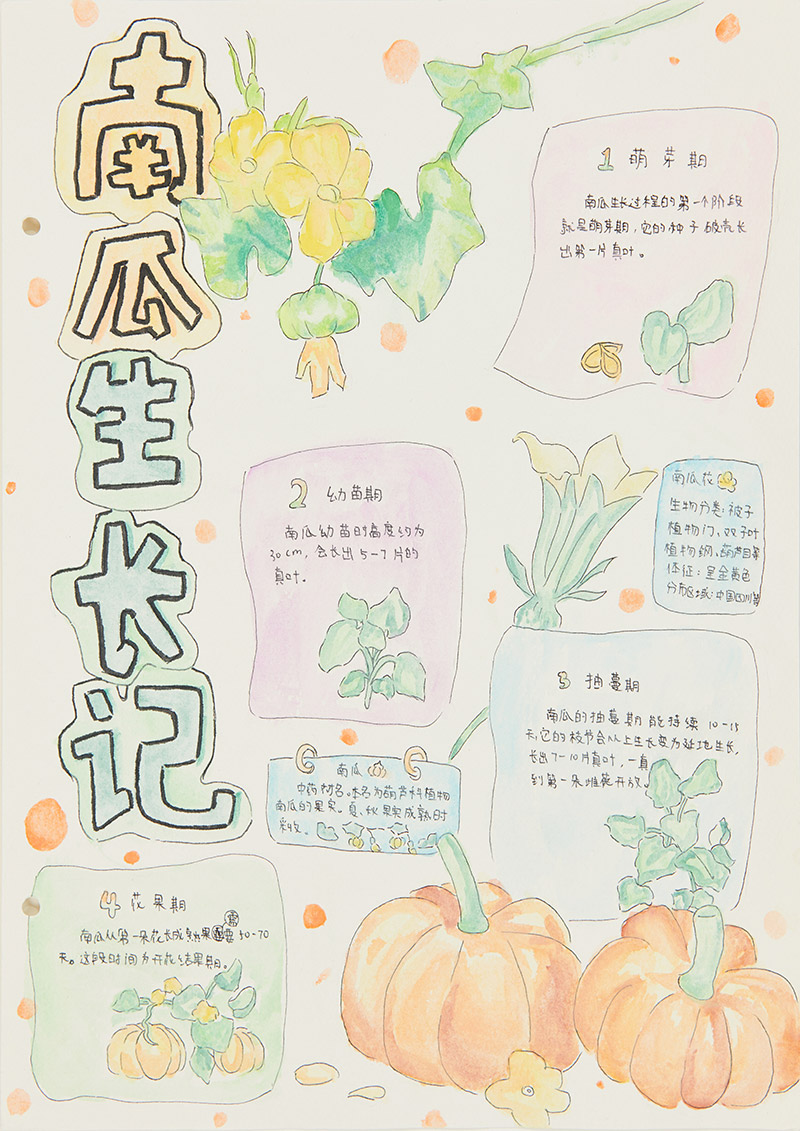 南瓜生长记
1 萌芽期
南瓜生长过程的第一个阶段
就是萌芽期，它的种子破壳长
出第一片真叶。
2 幼苗期
南瓜幼苗时高度约为
30cm，会长出5-7片的
真叶.
南瓜花
生物分类：被子
植物门、双子叶
植物钢、葫芦目等
体征：呈金黄色
分布区域：中国四川等
3 抽蔓期
南瓜的抽蔓期能持续10-15
天，它的枝节会从上生长变为延地生长，
长出7-10片真叶，一真
到第一朵雌花开放。
南瓜
中药材名。本名为葫芦科植物
南瓜的果实。夏、秋果实成熟时
采收。
4 花果期
南瓜从第一朵花长成熟果需要50-70
天。这段时间为开花结果期。